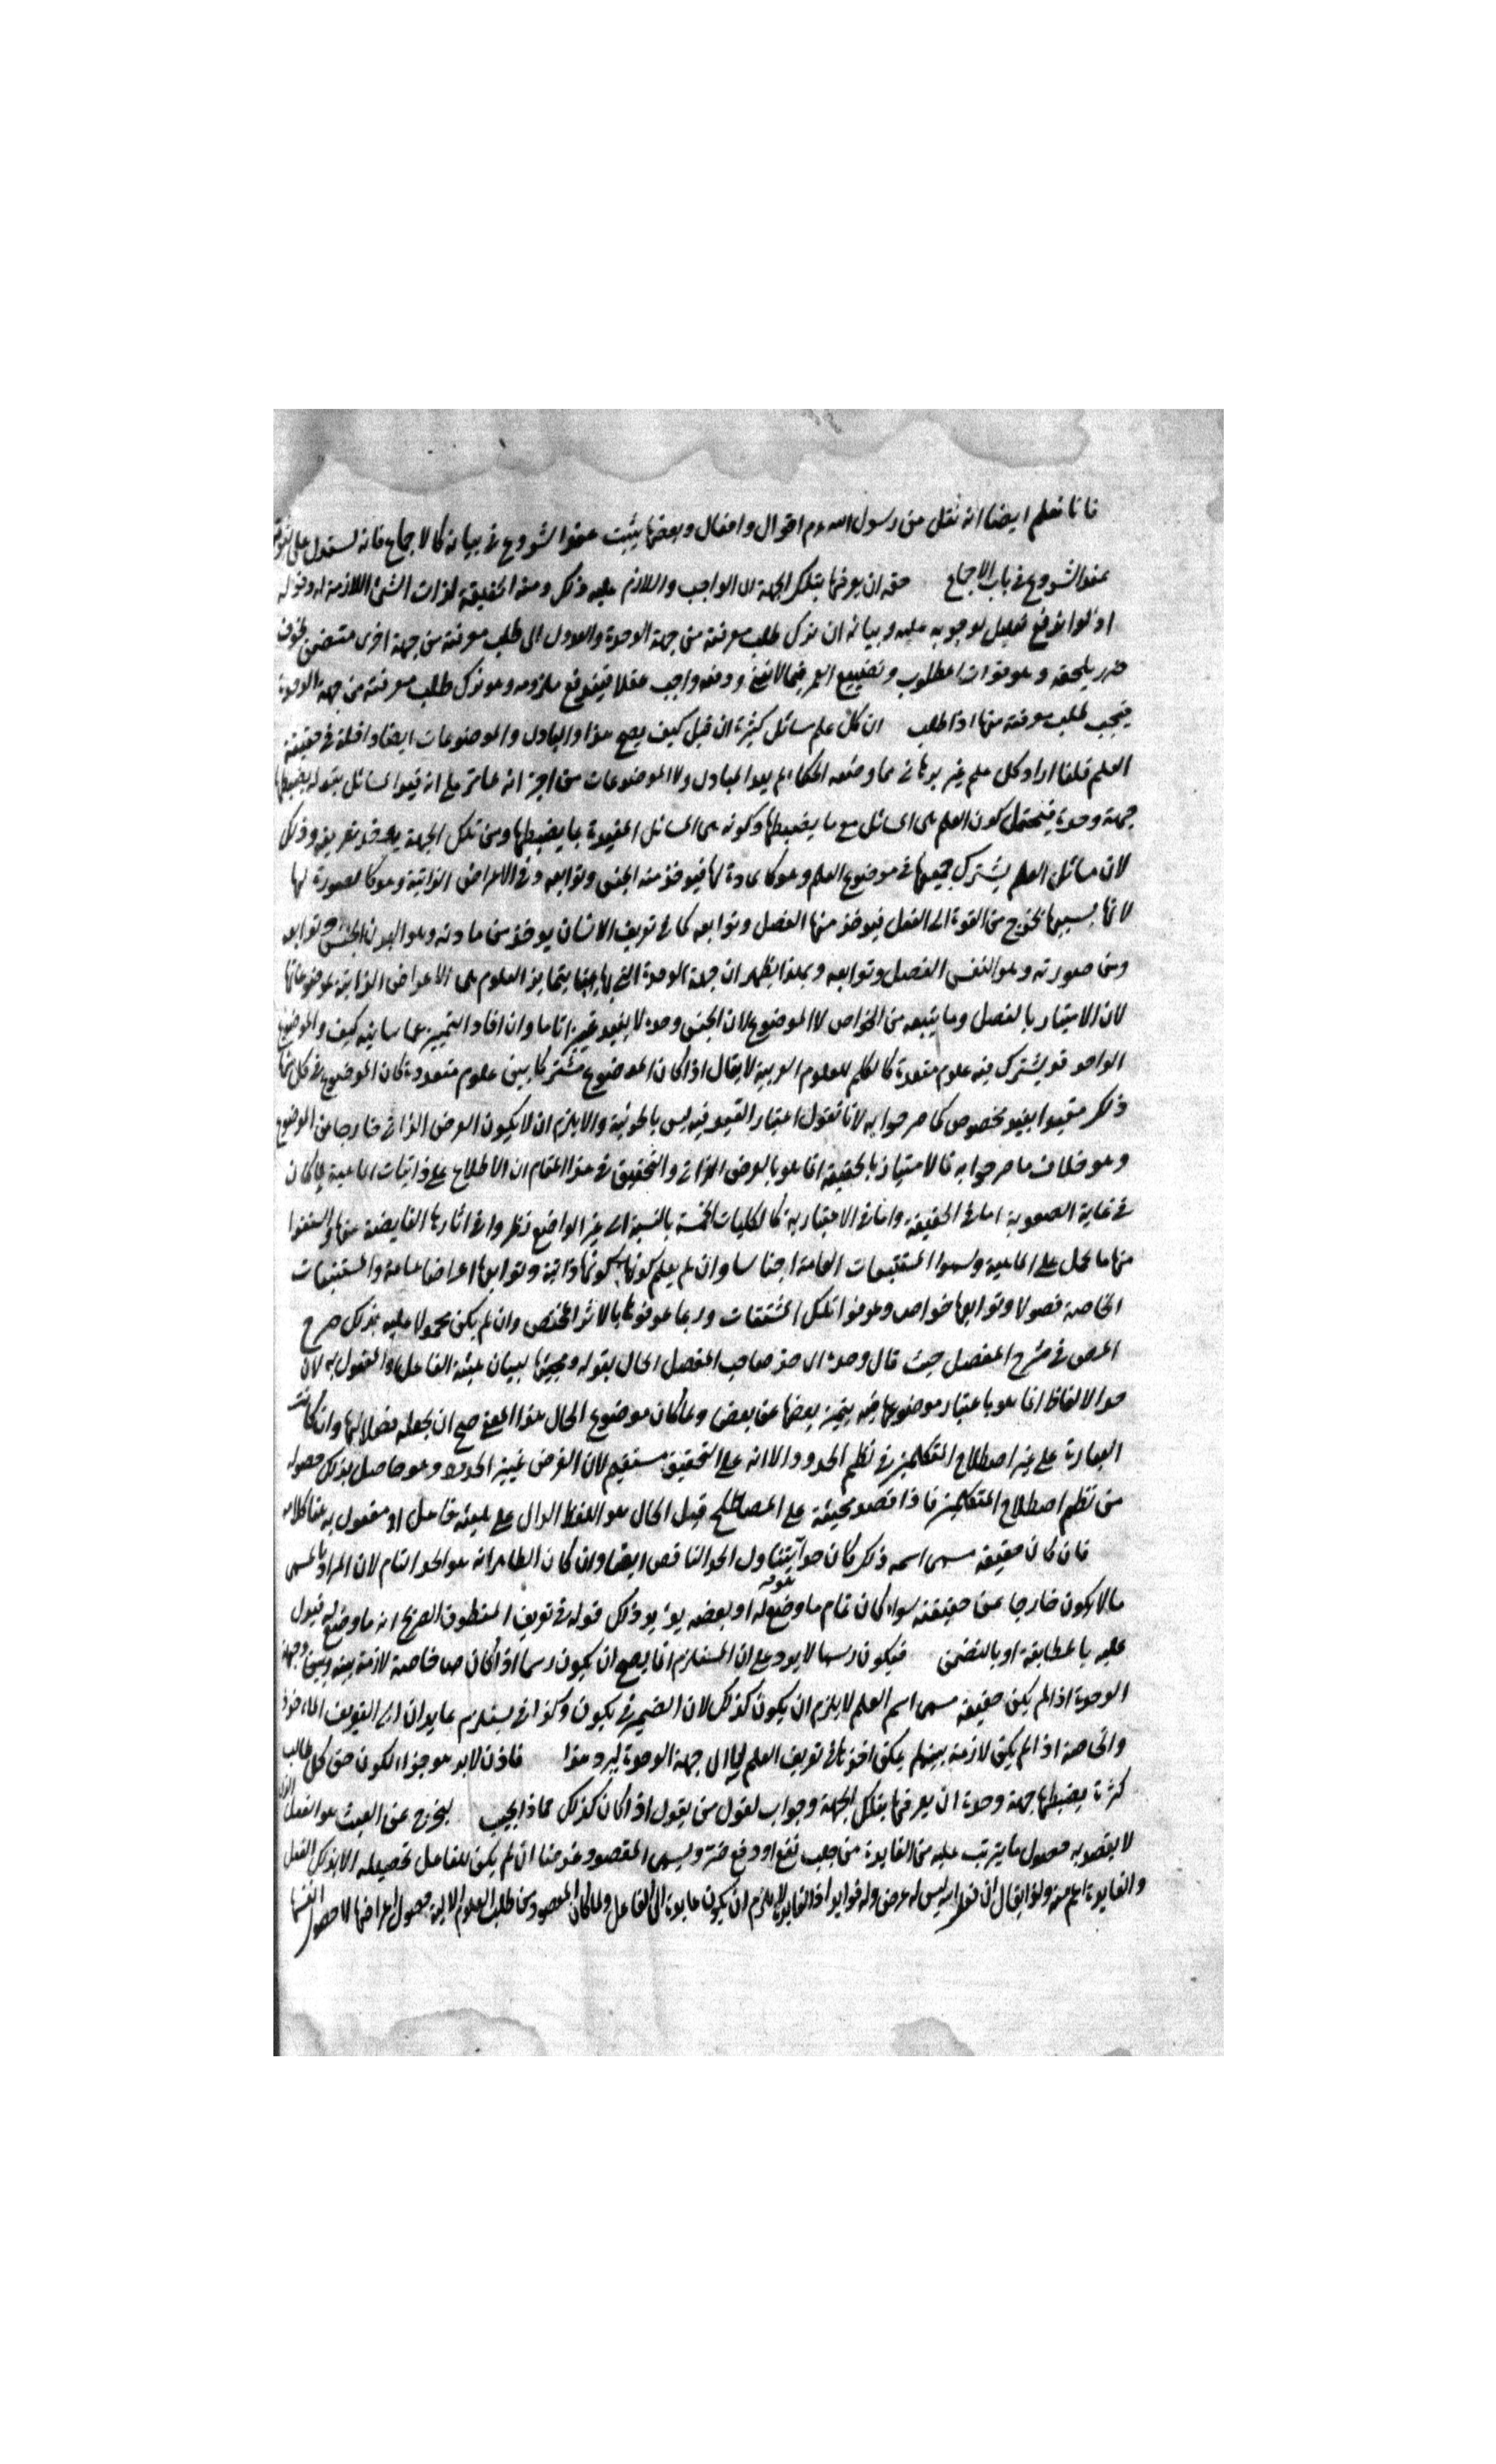 فانا نعلم ايضا انه نقل من رسول الله م اقوال وافعال وبعضها يثبت عند الشروع في بيانه كالاجماع فانه يستدل على ثبوته
عند الشروع في باب الاجماع حقه ان يعرفها بتلك الجهة ان الواجب واللازم عليه ذلك ومنه الحقيقة لذات الشئ اللازمة له وقوله
اذ لو اندفع تعليل لوجوبه عليه وبيانه ان ترك طلب معرفته من جهة الوحدة والعدول الى طلب معرفته من جهة اخرى متضمن لخوف
ضرر يلحقه وهو فوات المطلوب وتضييع العمر فيما لا يعنى ودفعه واجب عقلا فيندفع ملزومه وهو ترك طلب معرفته من جهة الوحدة
فيجب طلب معرفته منها اذا طلب ان كل علم مسائل كثيرة ان قيل كيف يصح هذا والمبادى والموضوعات ايضا داخلة في حقيقة
العلم قلنا اراد كل علم غير برهانى مما وضعه الحكماء لم يعد المبادى ولا الموضوعات من اجزائه على انه قيد المسائل بقوله يضبطها
جهة وحدة فيحتمل كون العلم هى المسائل مع ما يضبطها وكونه هى المسائل المقيدة بما يضبطها ومن تلك الجهة يؤخذ تعريفه وذلك
لان مسائل العلم يشترك جميعها في موضوع العلم وهو كالمادة لها فيؤخذ منه الجنس وتوابعه وفي الاعراض الذاتية وهو كالصورة لها
لانها بسببها تخرج من القوة الى الفعل فيؤخذ منها الفصل وتوابعه كما في تعريف الانسان يؤخذ من مادته وهو البدن الجنس وتوابعه
ومن صورته وهو النفس الفصل وتوابعه وبهذا يظهر ان جهة الوحدة التى بها يتمايز العلوم هى الاعراض الذاتية لا موضوعاتها
لان الامتياز بالفصل وما يتبعه من الخواص لا الموضوع لان الجنس وحده لا يفيد تمييزا تاما وان افاد التمييز عما يباينه كيف والموضوع
الواحد قد يشترك فيه علوم متعددة كالكلم للعلوم العربية لا يقال اذا كان الموضوع مشتركا بين علوم متعددة كان الموضوع في كل منها
ذلك مقيدا بقيد مخصوص كما صرحوا به لانا نقول اعتبار القيد فيه ليس بالجزئية والا يلزم ان لا يكون العرض الذاتى خارجا من الموضوع
وهو خلاف ما صرحوا به فالامتياز بالحقيقة انما هو بالعرض الذاتى والتحقيق في هذا المقام ان الاطلاع على ذاتيات الماهية لما كان
في غاية الصعوبة اما في الحقيقة واما في الاعتبارية كالكليات الخمسة بالنسبة الى غير الواضع نظروا في اثارها الفايضة منها واشتقوا
منها ما يحمل على الماهية وسموا المستتبعات العامة اجناسا وان لم يعلم كونها ذاتية وتوابعها اعراضا عامة والمستتبعات
الخاصة فصولا وتوابعها خواص وعرفوا تلك المشتقات وربما عرفوها بالاثر المختص وان لم يكن محمولا عليه بذلك صرح
المص في شرح المفصل حيث قال وحد اخذ صاحب المفصل الحال بقوله ومجيئها لبيان هيئة الفاعل او المفعول به لان
حد الالفاظ انما هو باعتبار موضوعها فيه يتميز بعضها عن بعض ولما كان موضوع الحال هذا المعنى صح ان يجعله فصلا لها وان كانت
العبارة على غير اصطلاح المتكلمين في نظم الحدود الا انه على التحقيق مستقيم لان الغرض تمييز المحدود وهو حاصل بذلك حصوله
من نظم اصطلاح المتكلمين فاذا قصد مجيئه على المصطلح قيل الحال هو اللفظ الدال على هيئة فاعل او مفعول به هذا كلامه
فان كان حقيقة مسمى اسمه ذلك كان حدا يتناول الحد الناقص ايضا وان كان الظاهر انه هو الحد التام لان المراد بالمسمى
ما لا يكون خارجا عن حقيقته سواء كان تمام ما وضع له او بعضه يؤيد ذلك قوله في تعريف المنطوق الصريح انه ما وضع له فيدل
عليه بالمطابقة او بالتضمن فيكون رسما لا يرد على ان المستلزم انما يصح ان يكون رسما اذا كان خاصة لازمة بينة وبين وجهة
الوحدة اذا لم يكن حقيقة مسمى اسم العلم لا يلزم ان يكون كذلك لان الضمير في يكون وكذا في يستلزم عايدان الى التعريف الماخوذ
والخاصة اذا لم يكن لازمة بينة لم يمكن اخذها في تعريف العلم لا الى جهة الوحدة ليرد هذا فاذن لا بد هو جزاء لكون حق كل طالب
كثرة يضبطها جهة وحدة ان يعرفها بتلك الجهة وجواب لقول من يقول اذا كان كذلك فماذا يجب ليخرج عن العبث هو الفعل الذى
لا يقصد به حصول ما يترتب عليه من الفايدة من جلب نفع او دفع ضر ويسمى المقصود غرضا ان لم يكن للفاعل تحصيله الا بذلك الفعل
والفايدة اعم منه ولذا يقال ان فعل الله ليس له غرض وله فوايد اذ الفايدة لا يلزم ان يكون عايدة الى الفاعل ولما كان المقصود من طلب العلوم الالية حصول اغراضها لا حصول انفسها